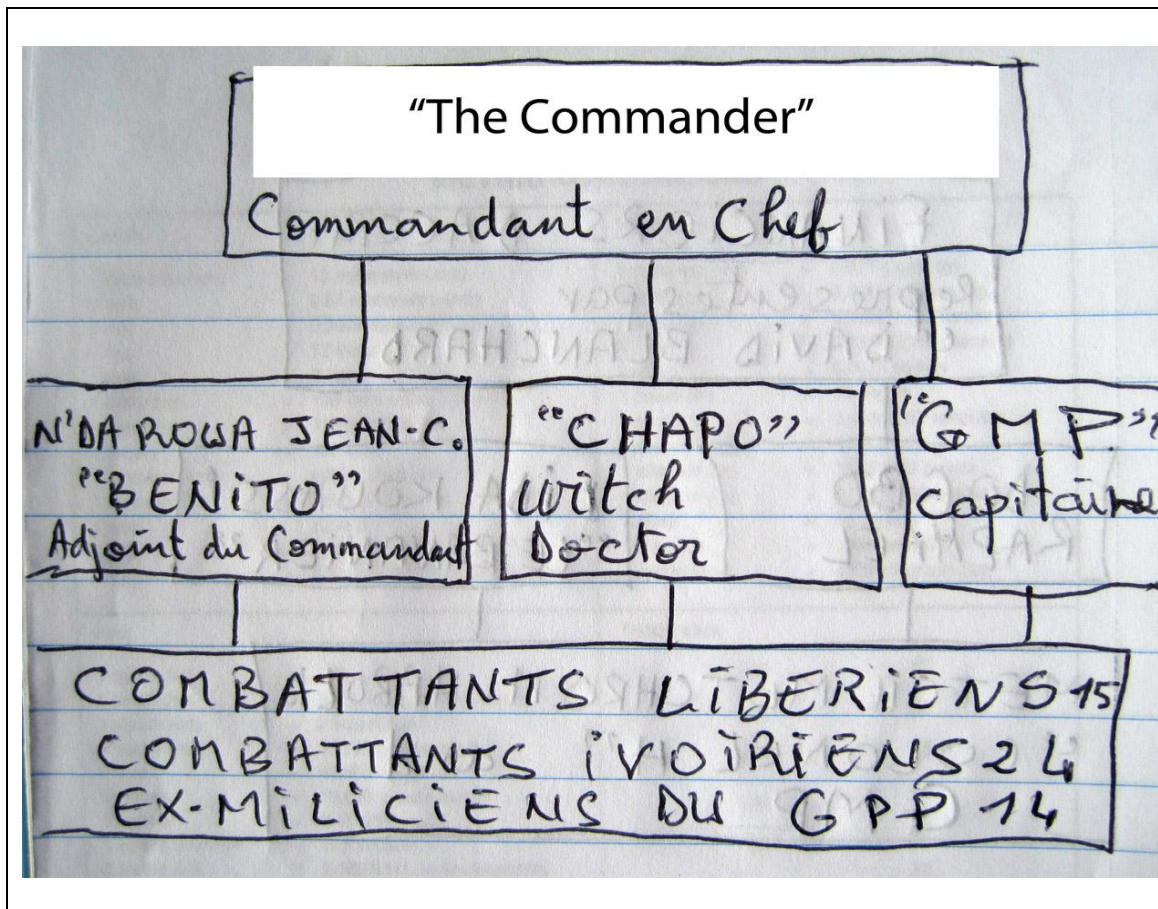 “The Commander”
Commandant en Chef
N'DA ROWA JEAN-C.
"BENiTO"
Adjoint du Commandant
"CHAPO"
Witch
Doctor
"GMP"
Capitaine
COMBATTANTS LiBERiENS 15
COMBATTANTS iVOiRiENS 24
EX-MiLiCiENS DU GPP 14